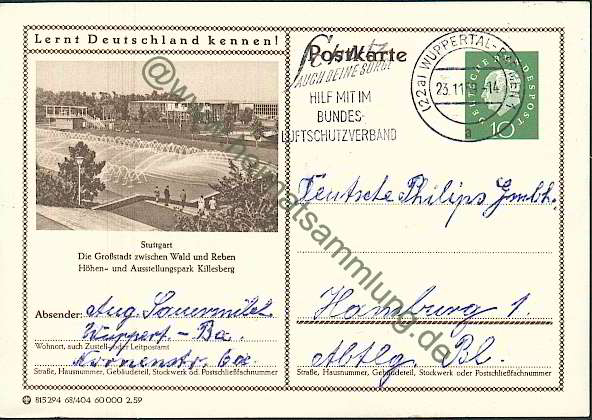 Lernt Deutschland kennen!
Stuttgart
Die Großstadt zwischen Wald und Reben
Höhen- und Ausstellungspark Killesberg
Absender: Aug. Sauermilch
Wuppert.-Ba.
Wohnort, auch Zustell- oder Leitpostamt
Straße, Hausnummer, Gebäudeteil, Stockwerk od. Postschließfachnummer
815 294 68/404 60 000 2.59
Postkarte
AUCH DEINE SORGE
HILF MIT IM
BUNDES-
LUFTSCHUTZVERBAND
(22a) WUPPERTAL-BARMEN 1
23.11.
-14
a
DEUTSCHE BUNDESPOST
10
Deutsche Philips Gmbh.
Hamburg 1.
Abtlg. Bl.
Straße, Hausnummer, Gebäudeteil, Stockwerk oder Postschließfachnummer
@www.heimatsammlung.de